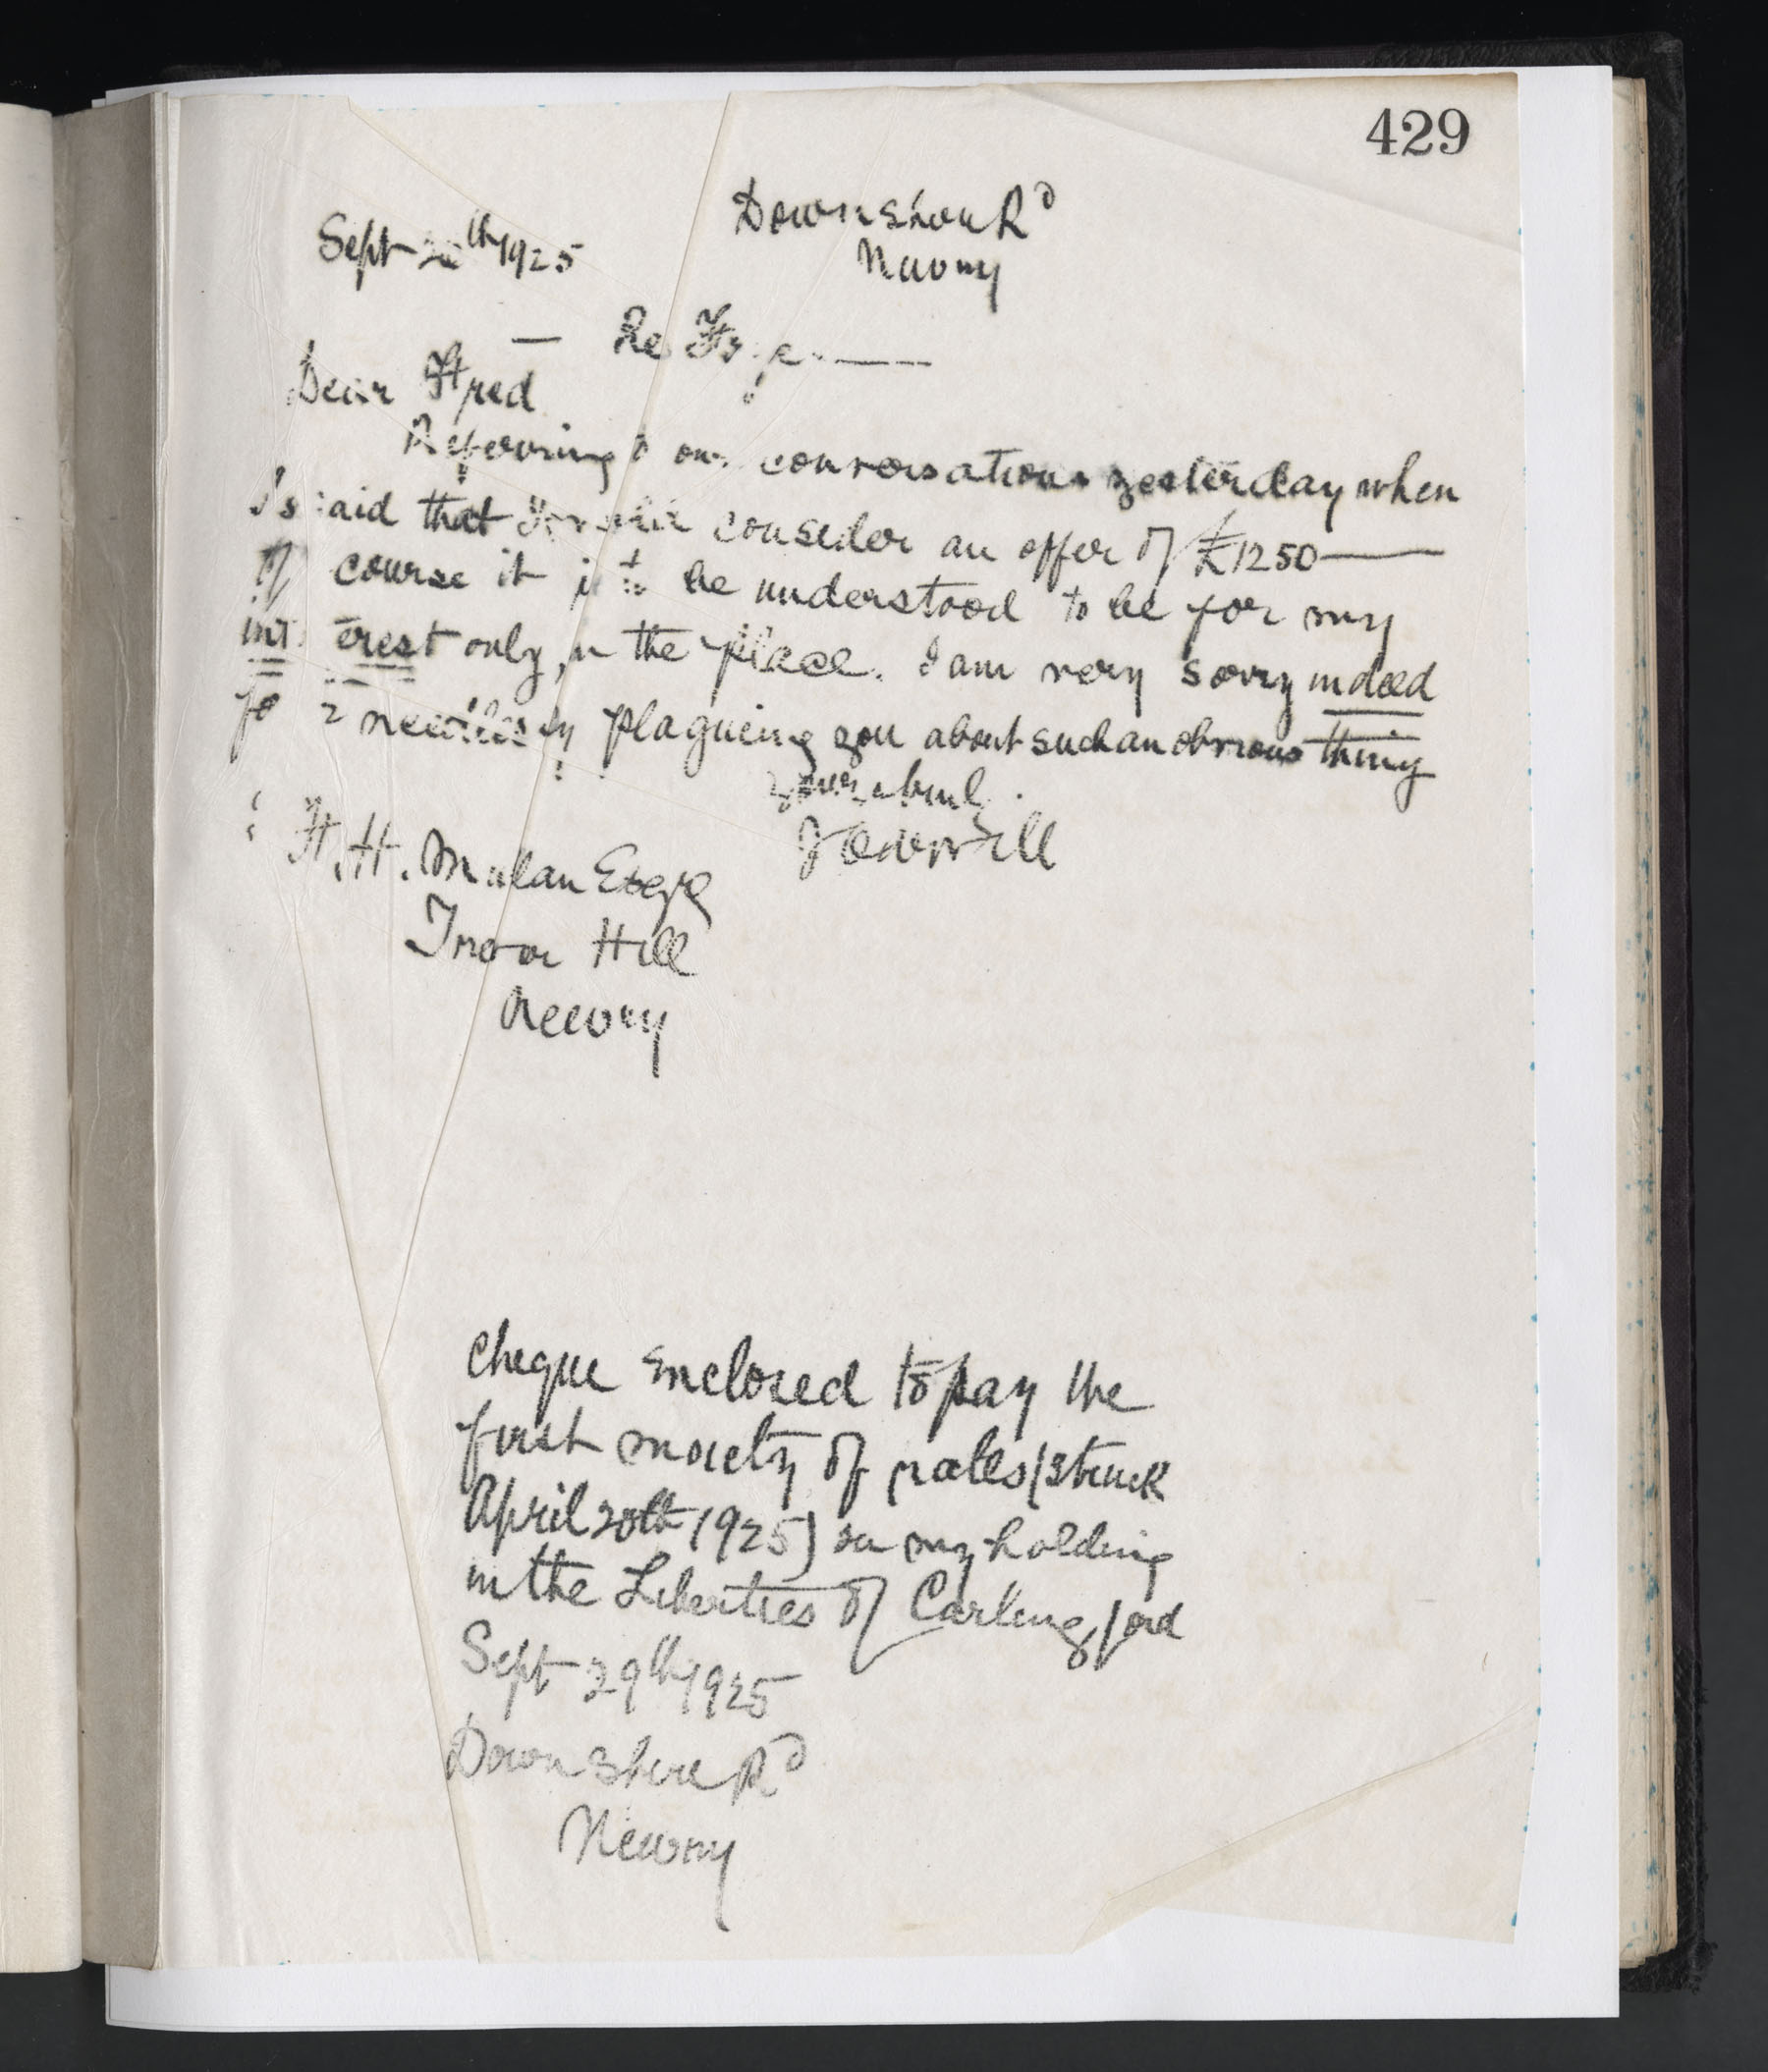 429
Downshire Rd
Newry
Sept th 1925
— Re
Dear Fred
Referring to our conversation yesterday when
I said that I would consider an offer of £1250 —
Of course it is to be understood to be for my
interest only in the place. I am very sorry indeed
for needlessly plaguing you about such an obvious thing
F. H. Mulan Esqre
Trevor Hill
Newry
Cheque enclosed to pay the
first moiety of rates (struck
April 20th 1925) on my holding
in the Liberties of Carlingford
Sept 29th 1925
Downshire Rd
Newry